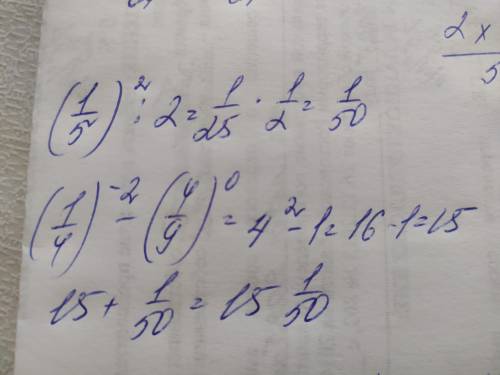 2x/5
(1/5)² : 2 = 1/25 · 1/2 = 1/50
(1/4)⁻² - (4/9)⁰ = 4² - 1 = 16 - 1 = 15
15 + 1/50 = 15 1/50